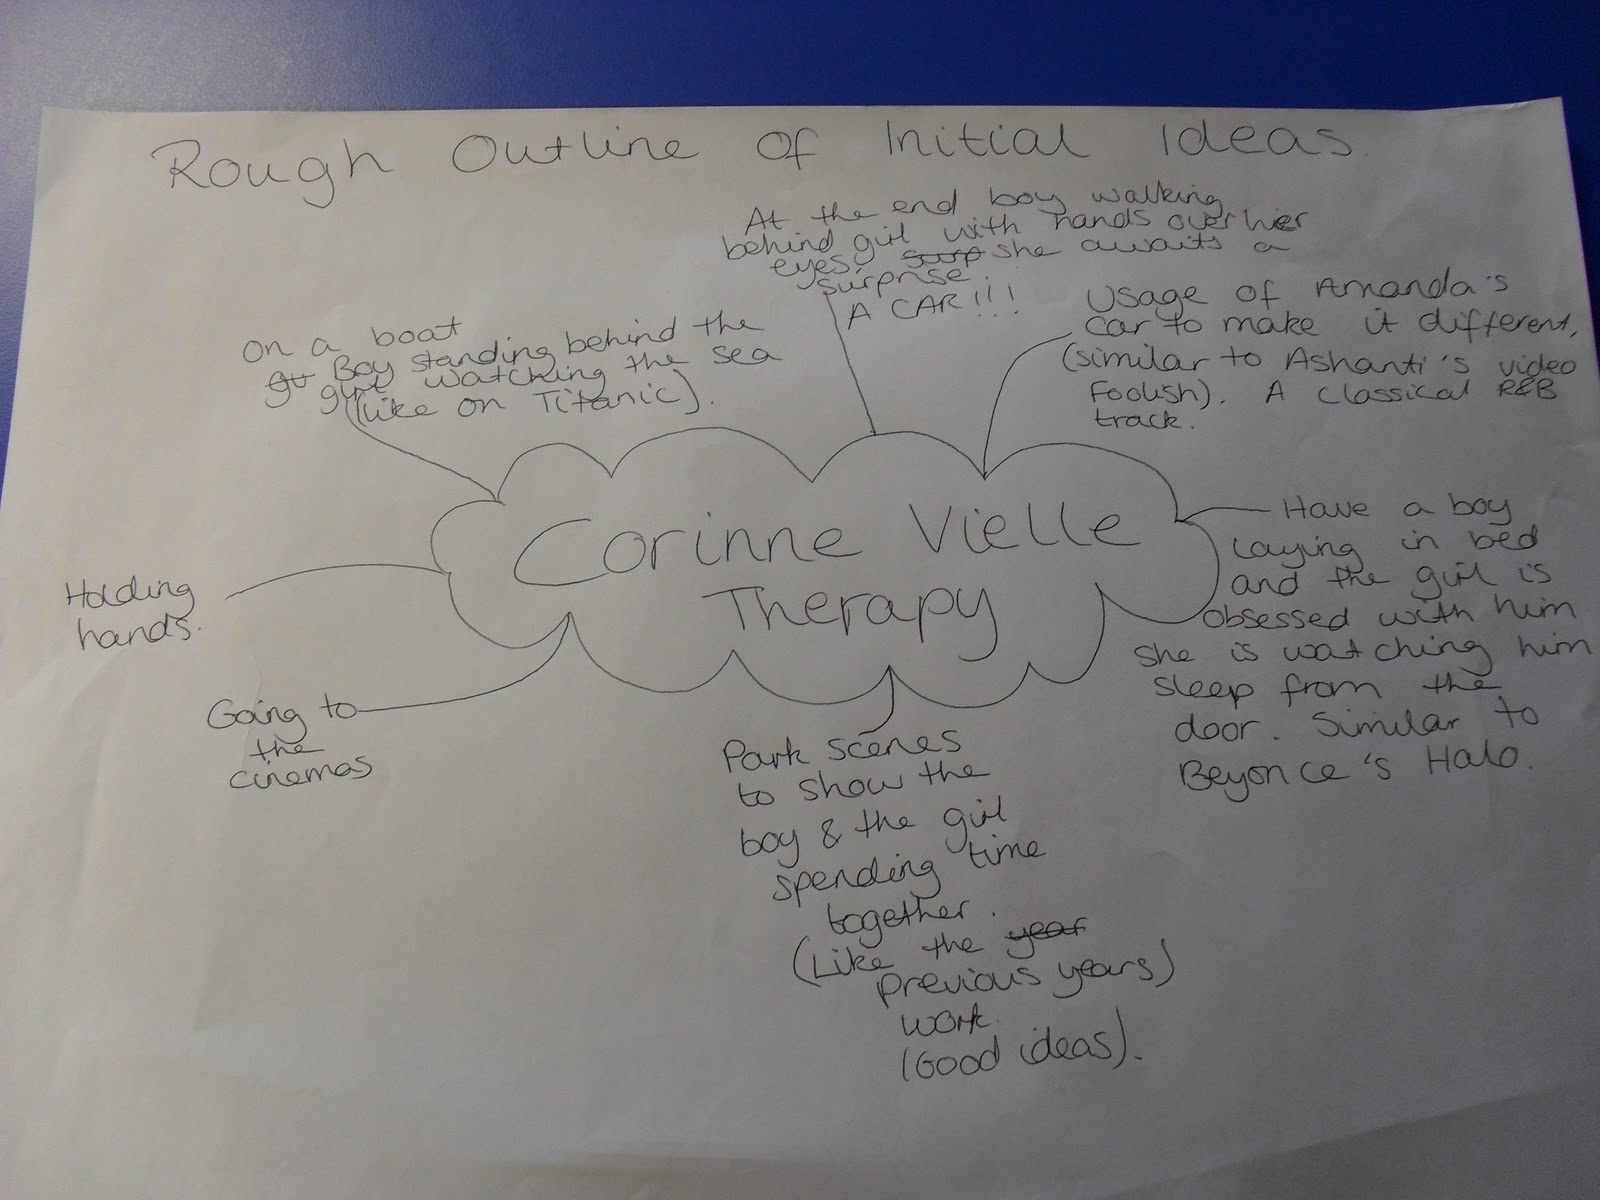 Rough Outline Of Initial Ideas.
At the end boy walking
behind girl with hands over her
eyes, surp she awaits a
surprise
A CAR!!!
Usage of Amanda's
car to make it different,
(similar to Ashanti's video
Foolish). A classical R&B
track.
Have a boy
laying in bed
and the girl is
obsessed with him
she is watching him
sleep from the
door. Similar to
Beyonce's Halo.
Park scenes
to show the
boy & the girl
spending time
together.
(Like the year
previous years)
work.
(Good ideas).
Going to
the
cinemas
Holding
hands.
On a boat
gu Boy standing behind the
girl watching the sea
(like on Titanic).
Corinne Vielle
Therapy